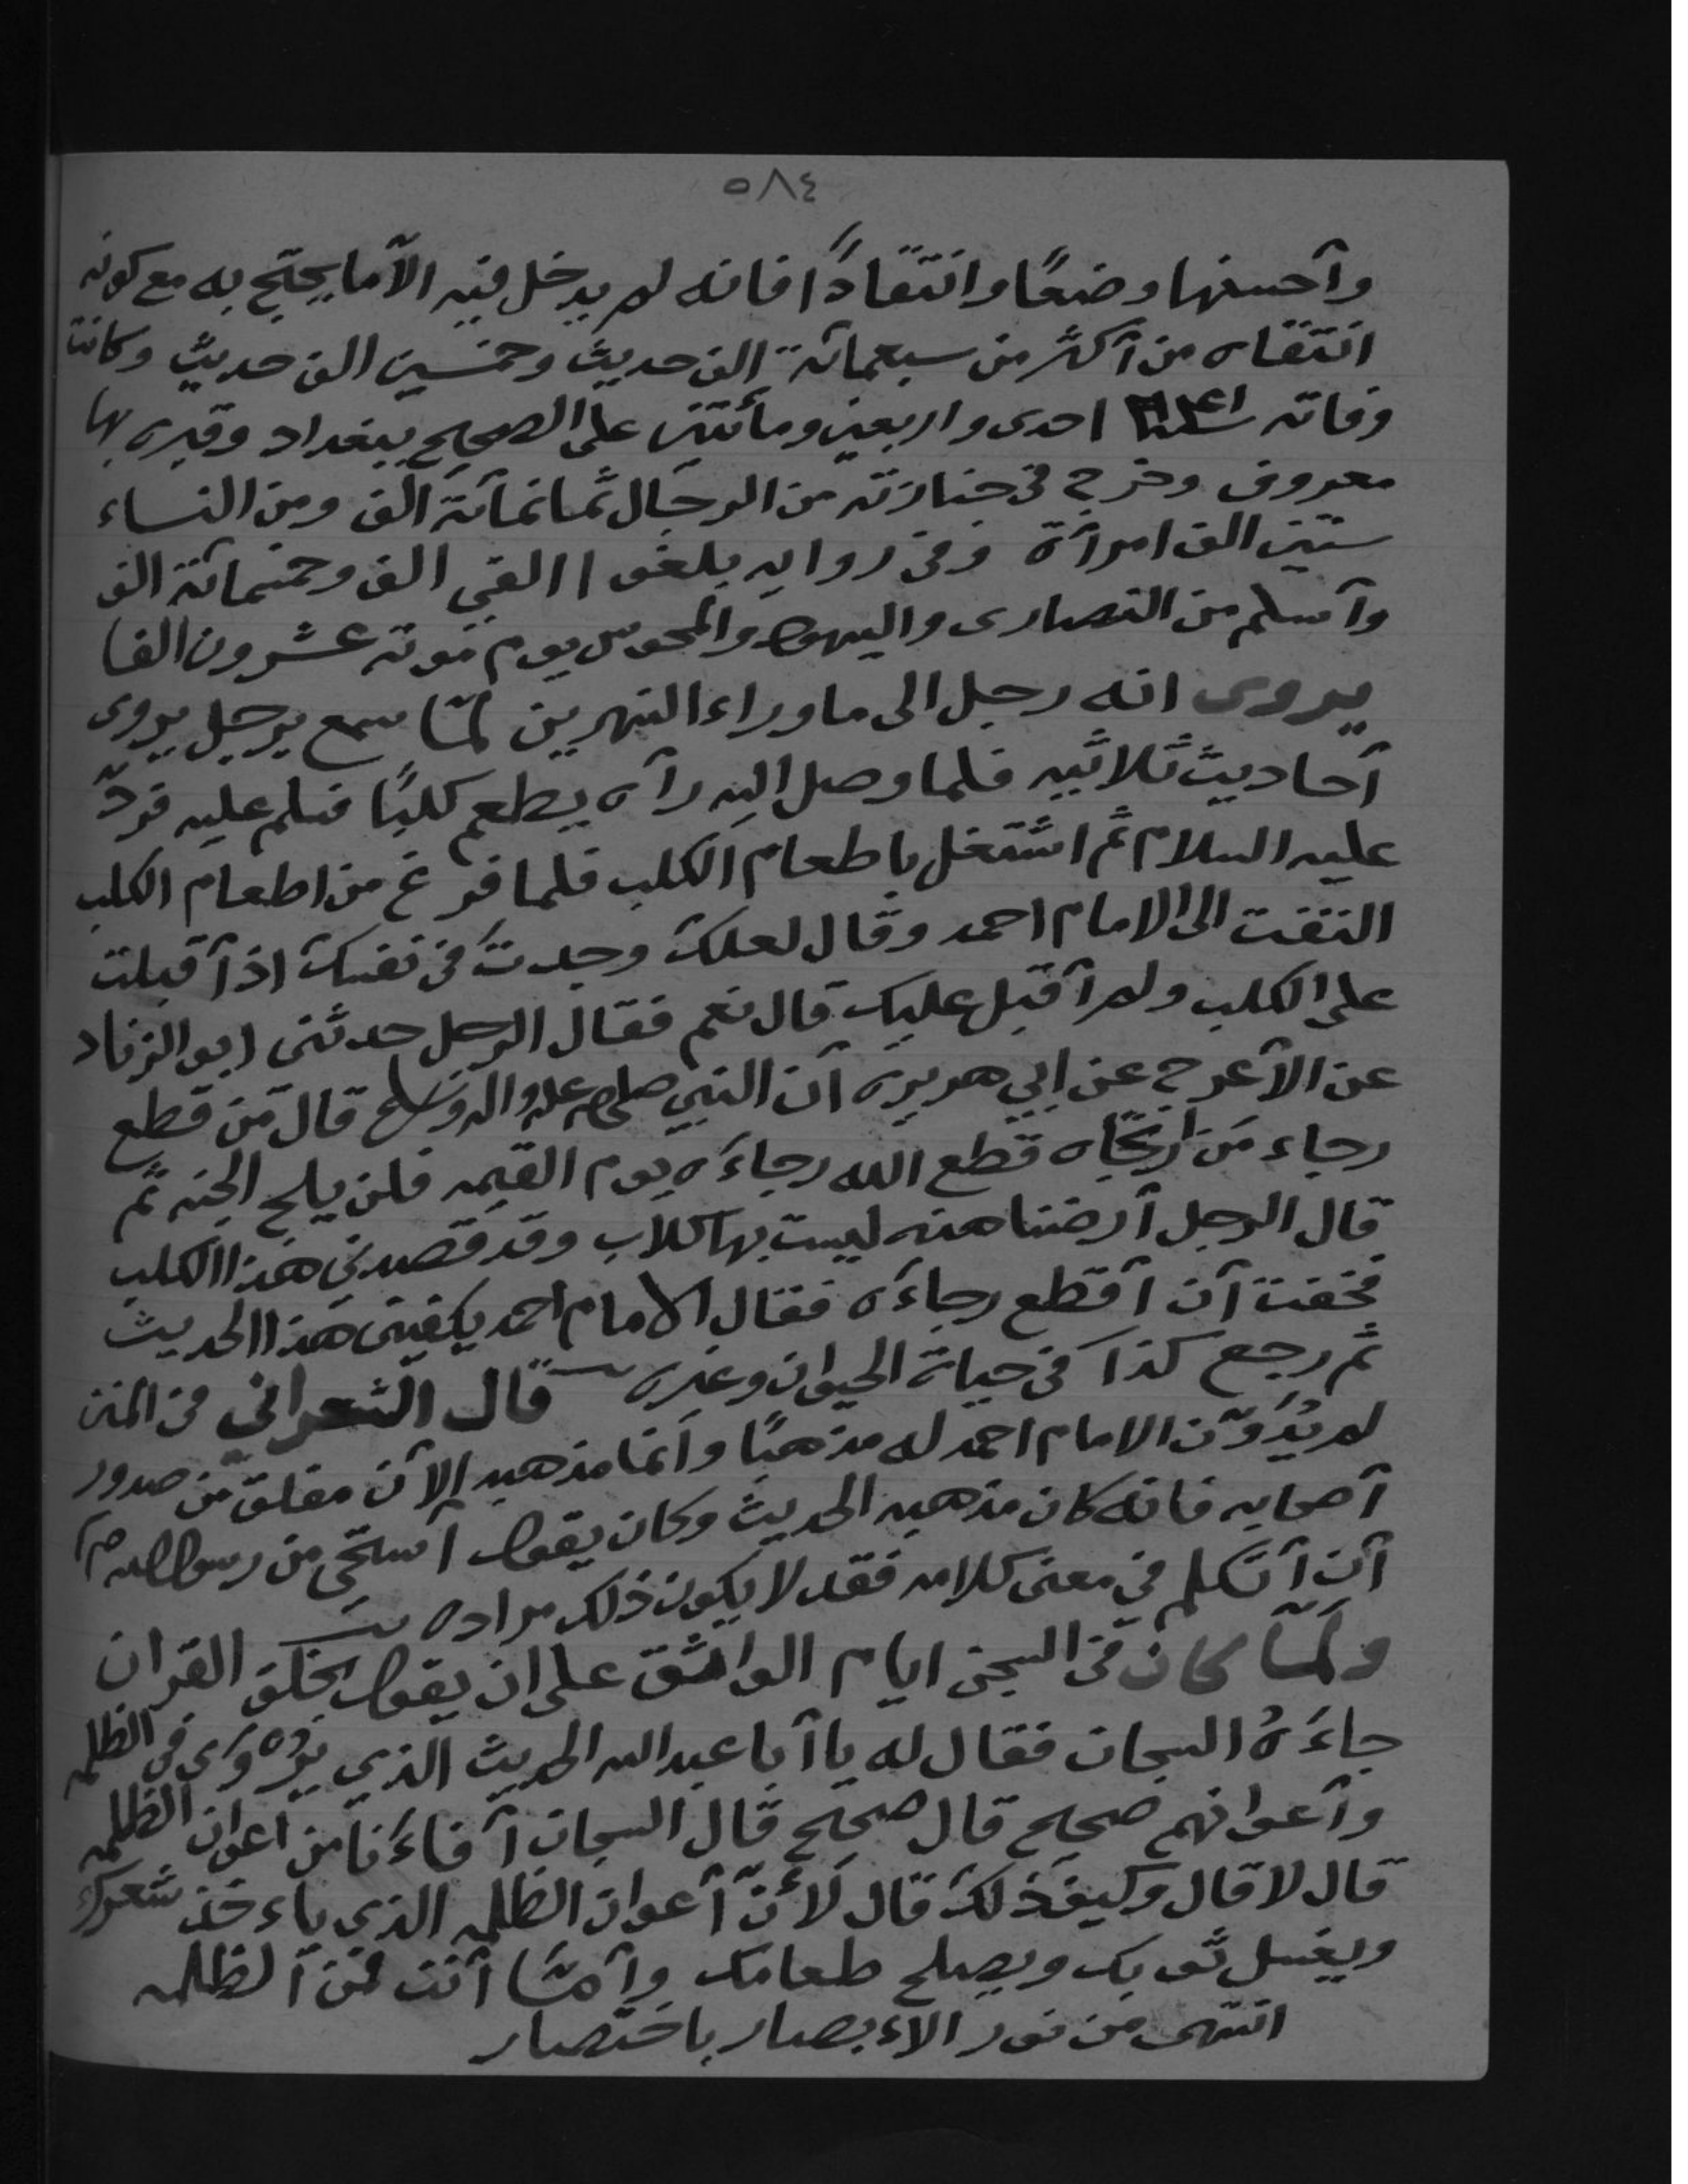 ٥٨٤
وأحسنها وضعًا وانتقادًا فانه لم يدخل فيه الاّ ما يحتج به مع كونه
انتقاه من أكثر من سبعمائة الف حديث وخمسين الف حديث وكانت
وفاته احدى واربعين ومأتين على الصحيح ببغداد وقبره بها
معروف وخرج في جنازته من الرجال ثمانمائة ألف ومن النساء
ستين الف امرأة وفى روايه بلغو االفي الف وخمسمائة الف
وأسلم من النصارى واليهود والمجوس يوم موته عشرون الفا
يروى انه رحل الى ما وراء النهرين لمّا سمع برجل يروى
أحاديث ثلاثيه فلما وصل اليه رآه يطعم كلبًا فسلم عليه فردّ
عليه السلام ثم اشتغل باطعام الكلب فلما فرغ من اطعام الكلب
التفت الى الامام احمد وقال لعلك وجدت في نفسك اذ أقبلت
على الكلب ولم أقبل عليك قال نعم فقال الرجل حدثنى ابو الزناد
عن الأعرج عن ابي هريره أن النبي صلى الله عليه واله وسلم قال من قطع
رجاء من ارتجاه قطع الله رجاءه يوم القيمه فلن يلج الجنه ثم
قال الرجل أرضنا هذه ليست بها كلاب وقد قصدني هذا الكلب
فخفت أن أقطع رجاءه فقال الامام احمد يكفينى هذا الحديث
ثم رجع كذا في حياة الحيوان وغيره قال الشعراني في المنن
لم يدوّن الامام احمد له مذهبًا وانما مذهبه الآن ملفق من صدور
أصحابه فانه كان مذهبه الحديث وكان يقول أستحي من رسول الله ص
أن أتكلم في معنى كلامه فقد لا يكون ذلك مراده
ولمّا كان في السجن ايام الواثق على ان يقول بخلق القران
جاءَهُ السجان فقال له يا أبا عبد الله الحديث الذي يروى في الظلمه
وأعوانهم صحيح قال صحيح قال السجان أفاءنا من اعوان الظلمه
قال لا قال وكيف ذلك قال لأنّ أعوان الظلمه الذي ياءخذ شعرك
ويغسل ثوبك ويصلح طعامك وأمّا أنت فمن ألظلمه
انتهى من نور الاءبصار باختصار